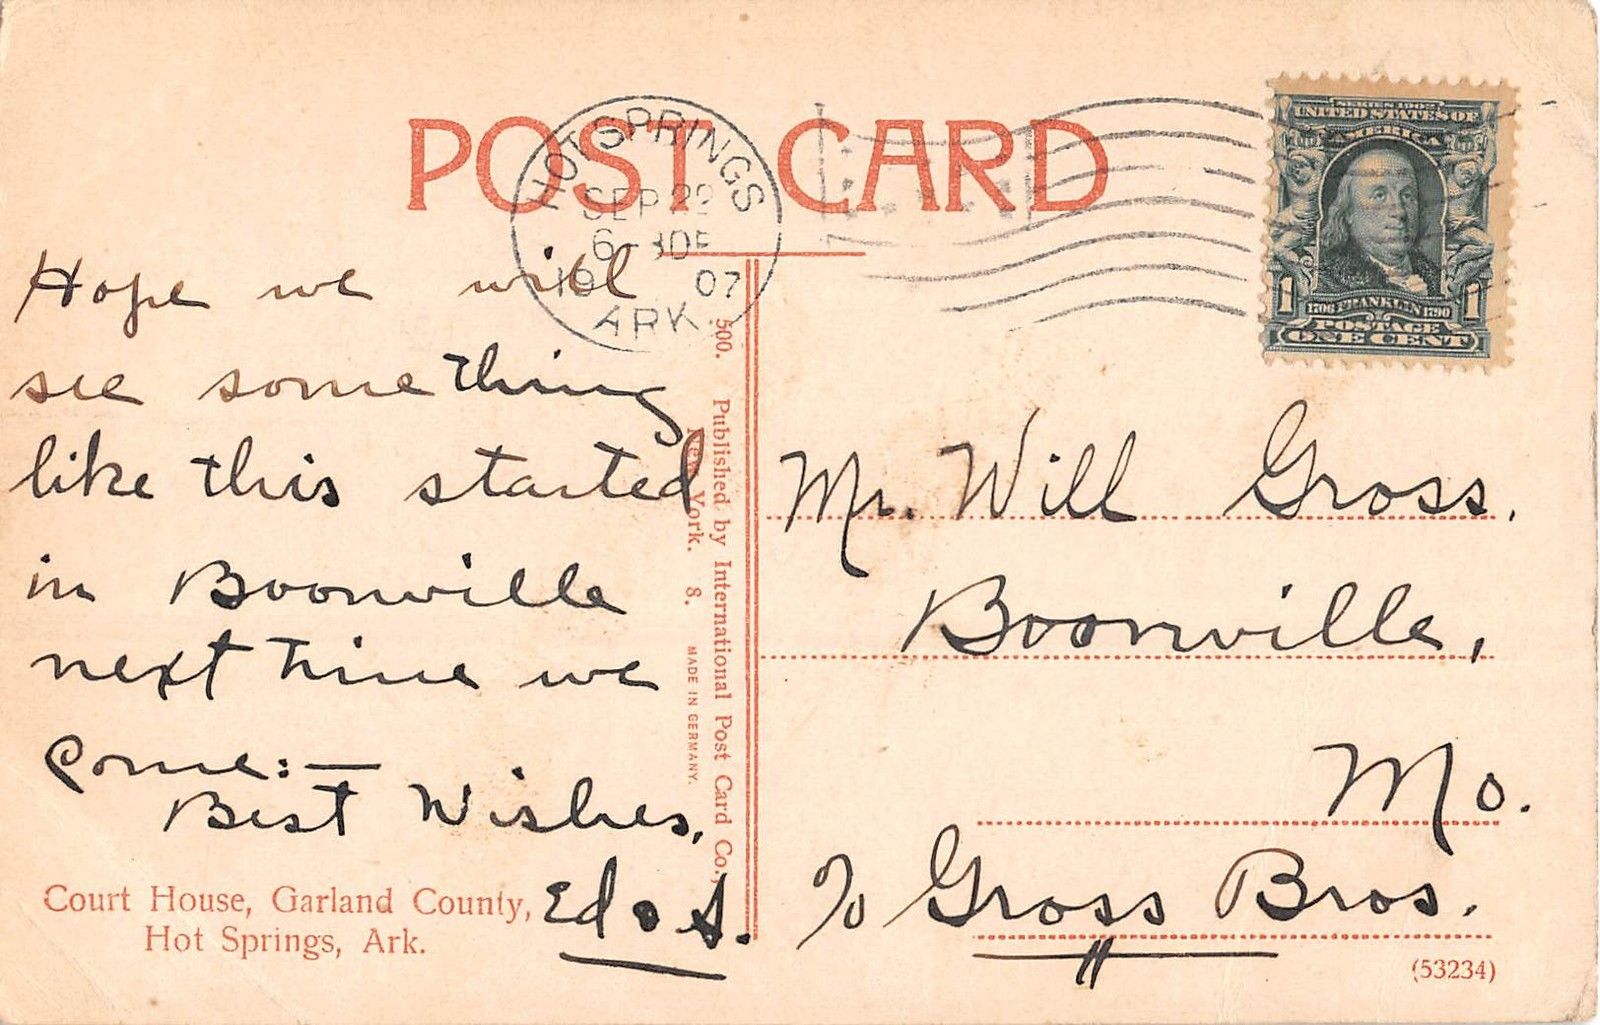 POST CARD
HOT SPRINGS
SEP 29
6-30P
19 07
ARK.
SERIES 1902
UNITED STATES OF
AMERICA
1 1
1706 FRANKLIN 1790
POSTAGE
ONE CENT
Hope we will
see something
like this started
in Boonville
next time we
come:—
Best Wishes,
Ed S.
Court House, Garland County,
Hot Springs, Ark.
500. Published by International Post Card Co.,
New York. 8. MADE IN GERMANY.
Mr. Will Gross.
Boonville,
Mo.
℅ Gross Bros.
(53234)